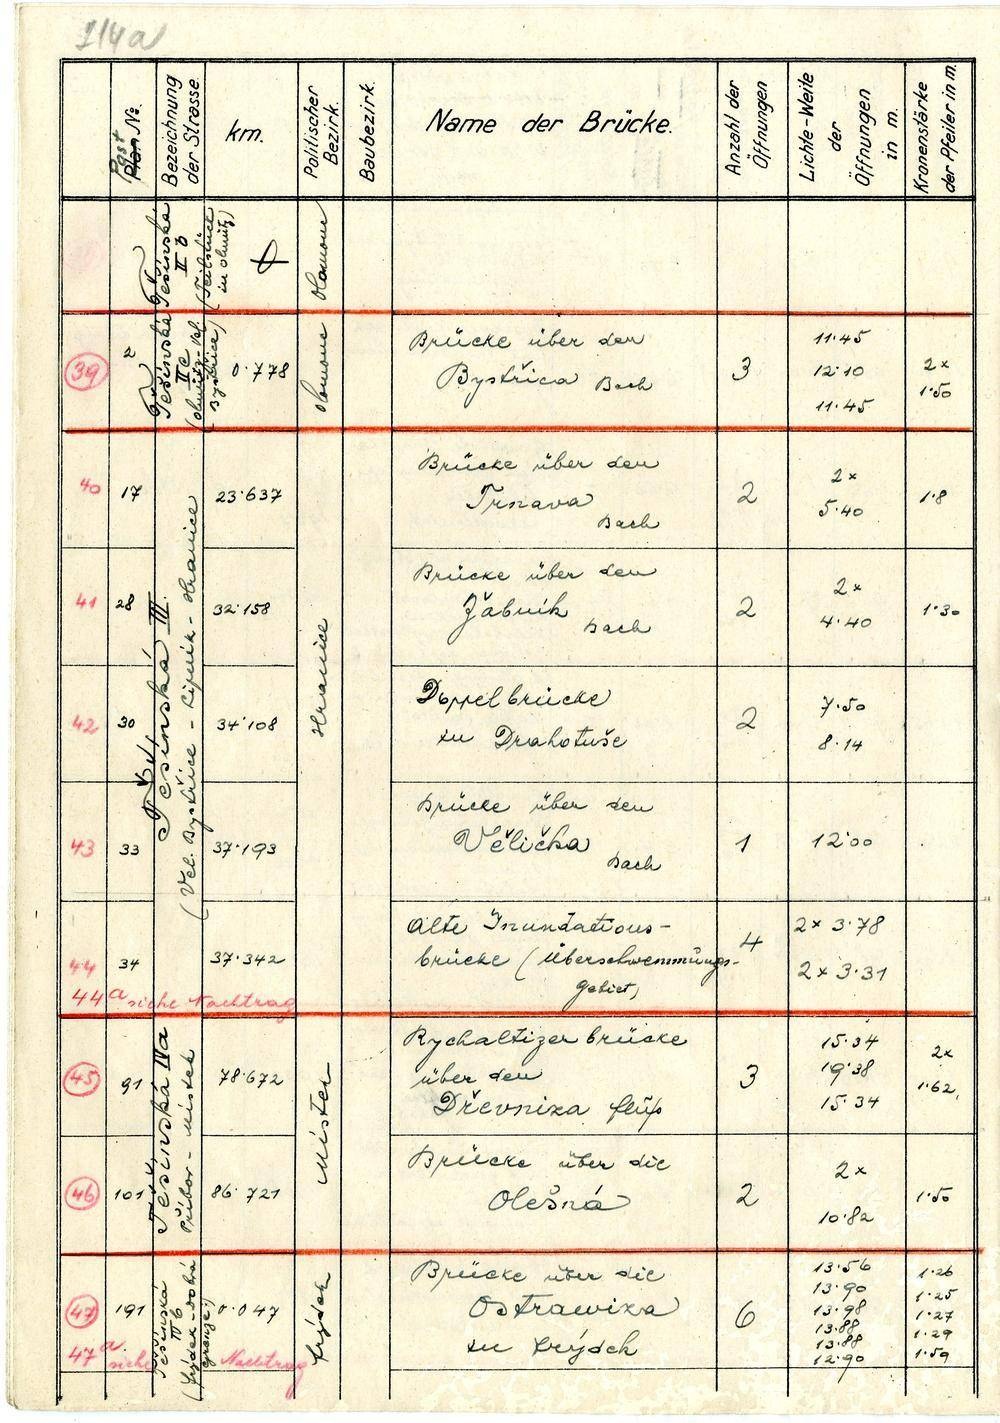 114a
Post
Plan No.
Bezeichnung
der Strasse.
km.
Politischer
Bezirk.
Baubezirk.
Name der Brücke.
Anzahl der
Öffnungen
Lichte-Weite
der
Öffnungen
in m.
Kronenstärke
der Pfeiler in m.
Těšínská
II b
in Olmütz)
Olomouc
39
2
Těšínská
II c
Bystřice)
0·778
Olomouc
Brücke über den
Bystřica Bach
3
11·45
12·10
11·45
2x
1·50
Těšínská III.
(Vel. Bystřice - Lipník - Hranice
Hranice
40
17
23·637
Brücke über den
Trnava
Bach
2
2x
5·40
1·8
41
28
32·158
Brücke über den
Žabník
Bach
2
2x
4·40
1·30
42
30
34·108
Doppelbrücke
zu Drahotuše
2
7·50
8·14
43
33
37·193
Brücke über den
Vělička
Bach
1
12·00
44
34
37·342
Alte Inundations-
brücke (Überschwemmungs-
gebiet)
4
2x 3·78
2x 3·31
44a siehe Nachtrag
Těšínská IVa
Příbor - Místek
Místek
45
91
78·672
Rychaltizer brücke
über den
Dřevniza fluß
3
15·34
19·38
15·34
2x
1·62
46
101
86·721
Brücke über die
Olešná
2
2x
10·82
1·50
47
191
Těšínská
IV b
0·047
Frýdek
Brücke über die
Ostrawiza
zu Frýdek
6
13·56
13·90
13·98
13·88
13·88
12·90
1·26
1·25
1·27
1·29
1·59
47a siehe Nachtrag